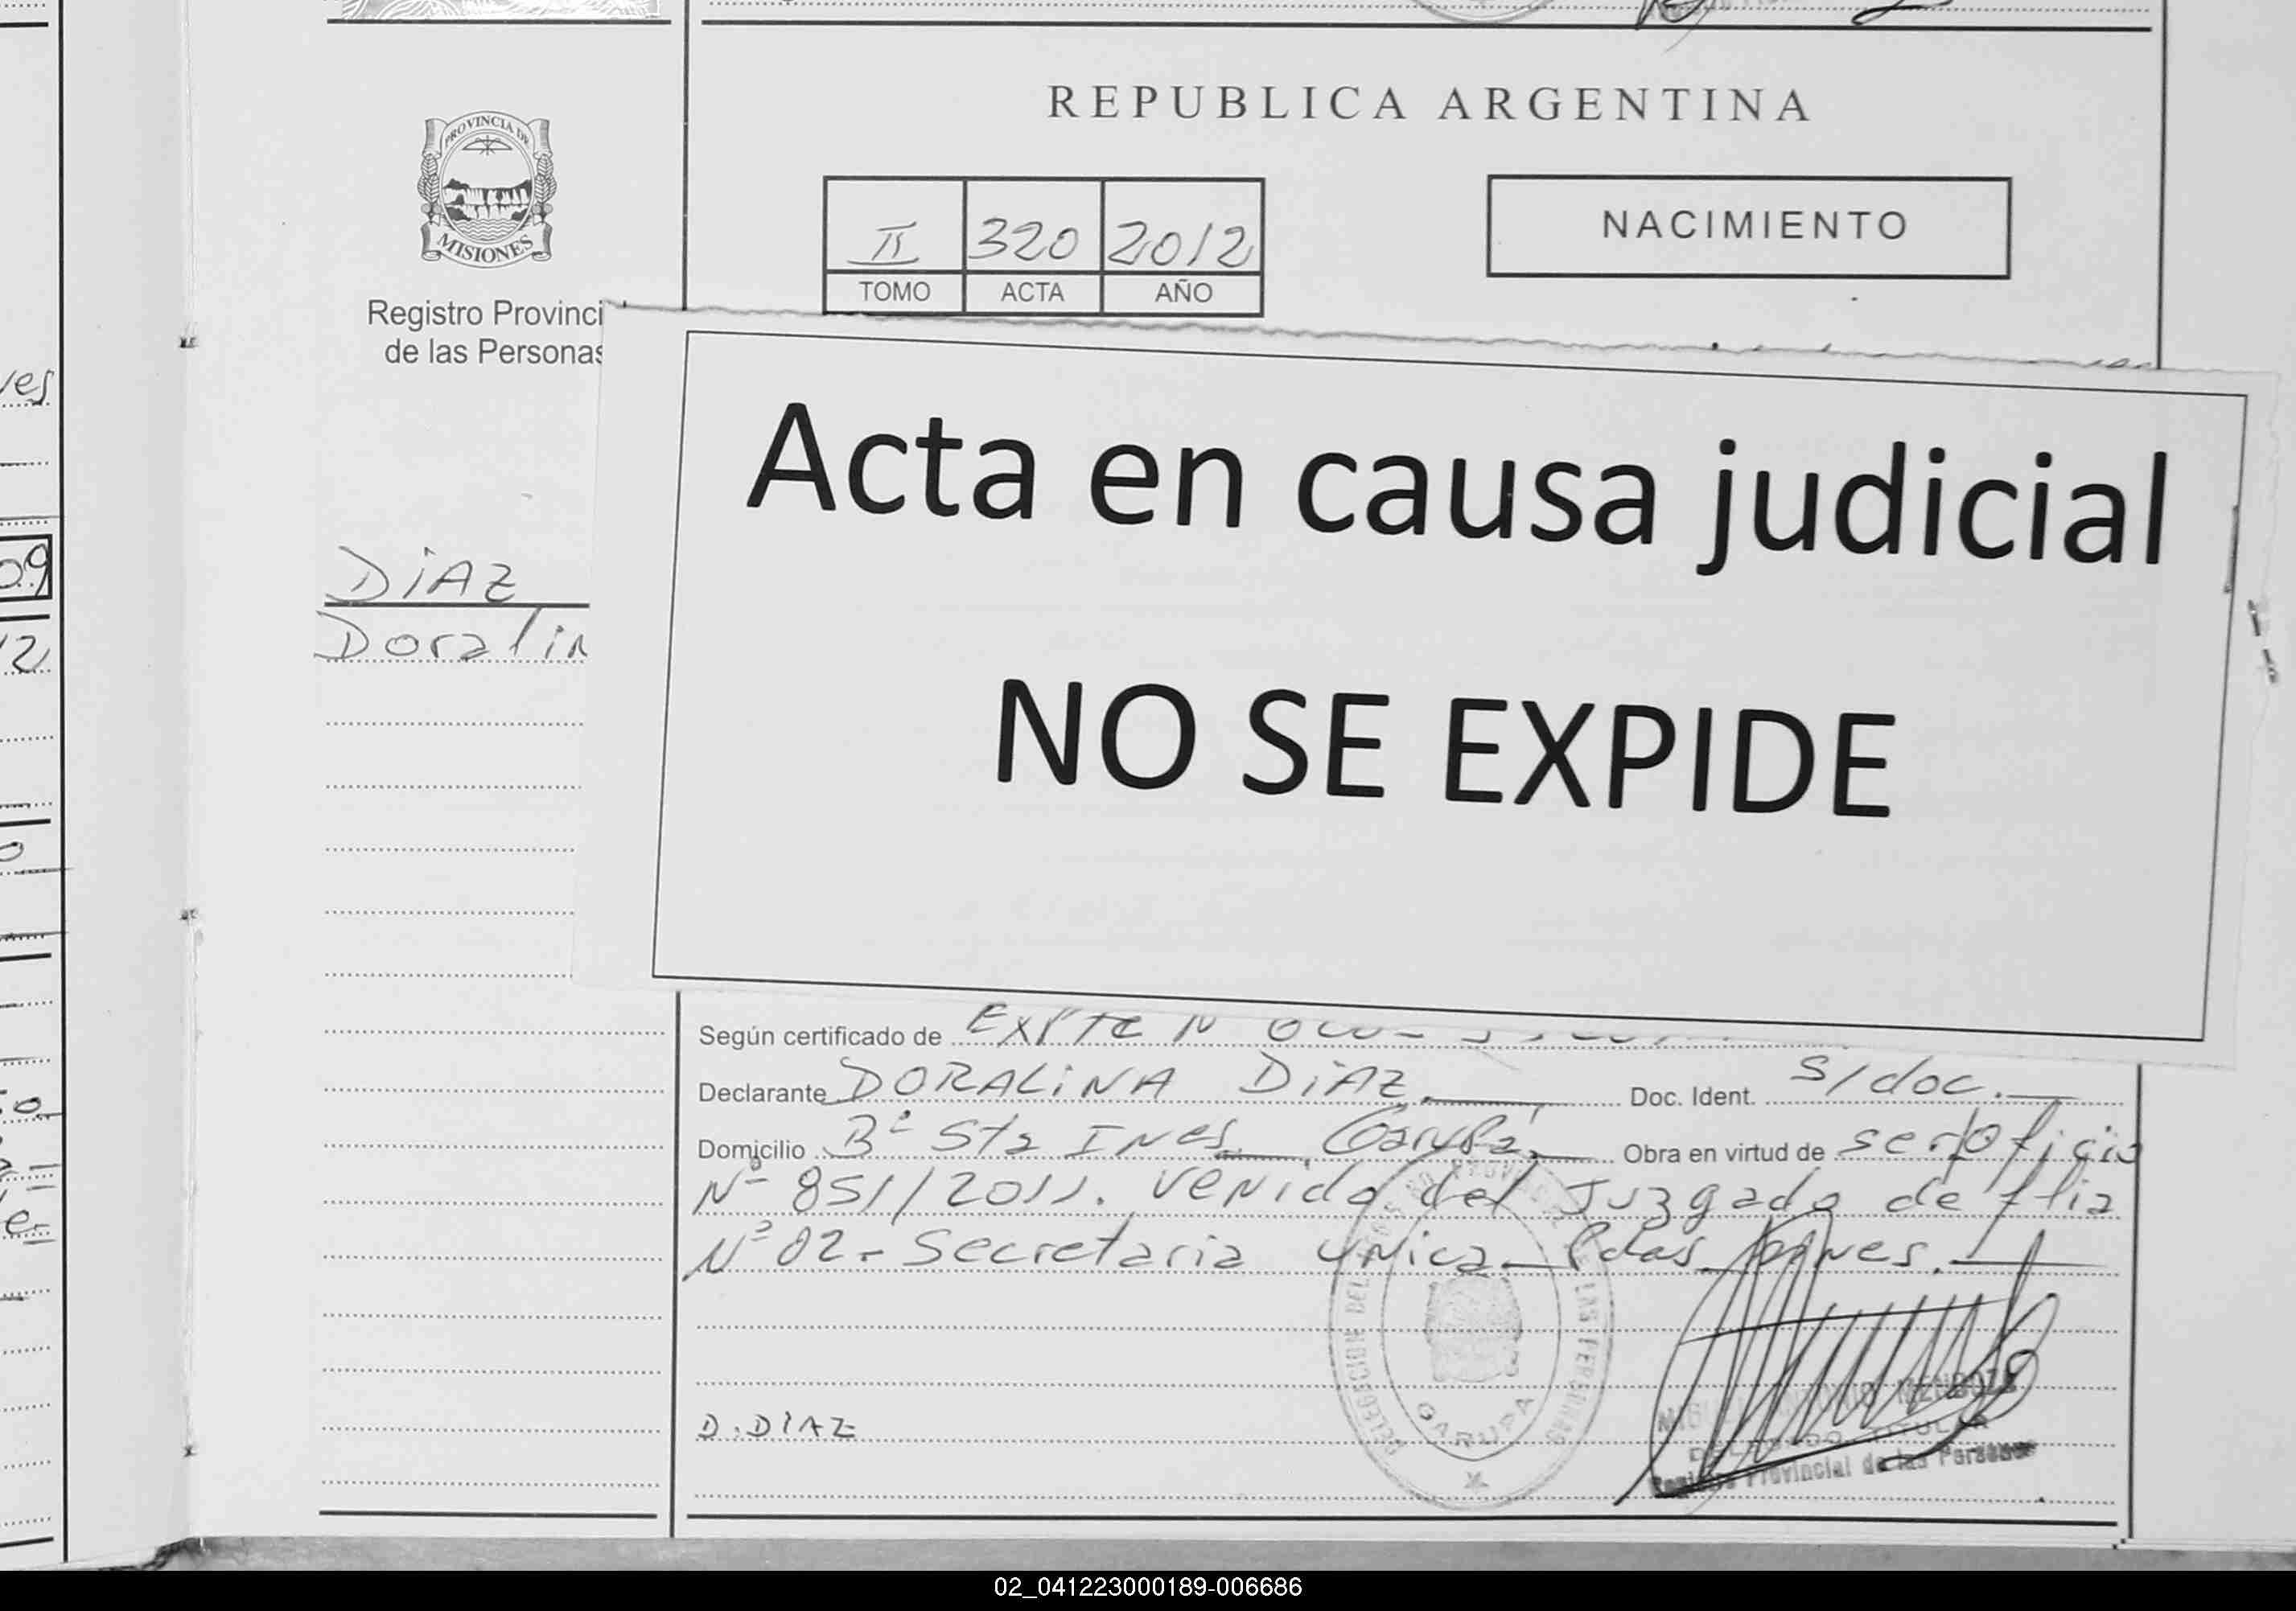 REPUBLICA ARGENTINA
PROVINCIA DE
MISIONES
Registro Provinci
de las Personas
II 320 2012
TOMO ACTA AÑO
NACIMIENTO
Acta en causa judicial
NO SE EXPIDE
DiAZ
Doralin
Según certificado de EXPTE N
Declarante DORALiNA DiAZ. Doc. Ident. S/doc.
Domicilio Bº Sta INes Garupá. Obra en virtud de ser s/oficio
Nº 851/2011. veNido del Juzgado de flia
Nº 02. Secretaria uNica Pdas
D. DIAZ
DELEGACION DEL LAS PERSONAS
GARUPA
MENDOZA
Provincial de las Personas
ves
09
12
02_041223000189-006686